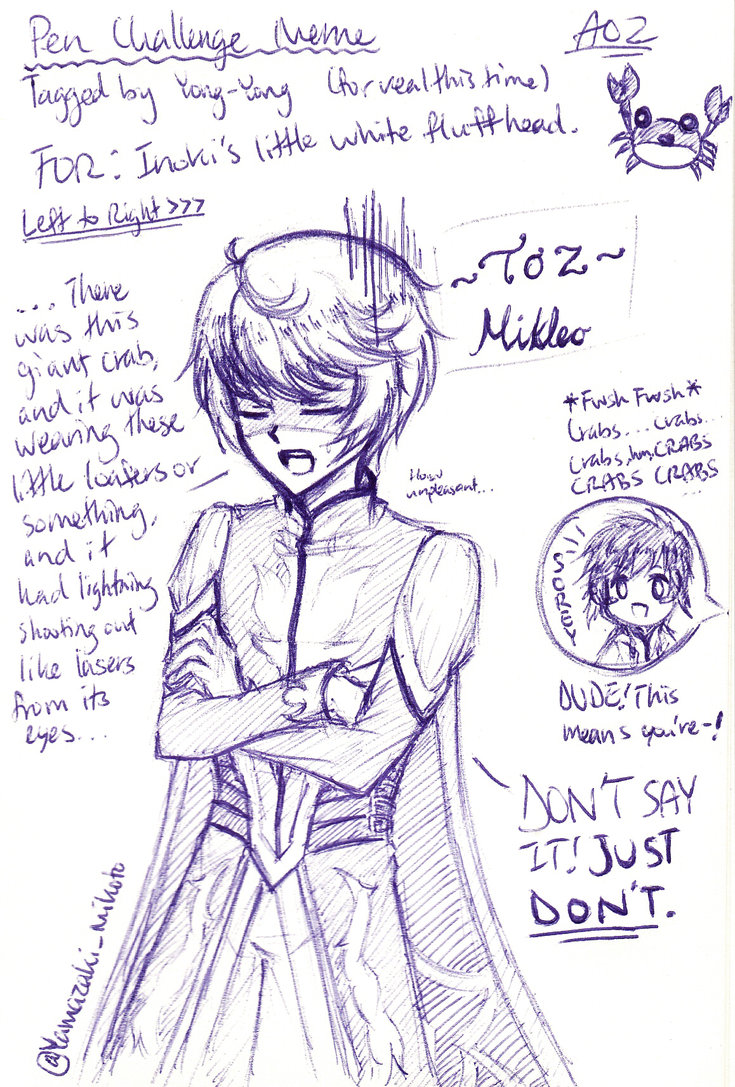 Pen Challenge Meme
AOZ
Tagged by Yong-Yong (for real this time)
FOR: Inoki's little white fluffhead.
Left to Right >>>
~TOZ~
Mikleo
... There
was this
giant crab,
and it was
wearing these
little loafers or
something,
and it
had lightning
shooting out
like lasers
from its
eyes...
How
unpleasant...
*Fwsh Fwsh*
Crabs... crabs...
crabs, hm, CRABS
CRABS CRABS
...
SOREY
DUDE! This
means you're-!
DON'T SAY
IT! JUST
DON'T.
@Yamazaki_Mikoto